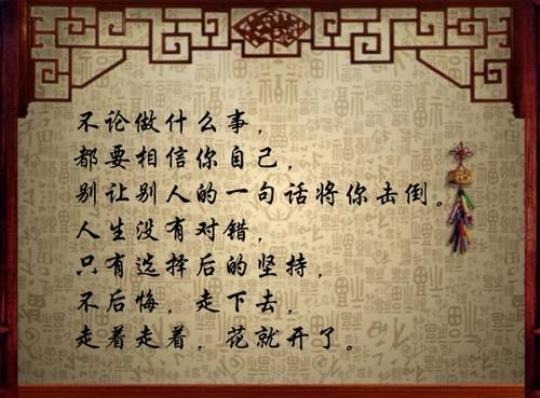 不论做什么事，
都要相信你自己，
别让别人的一句话将你击倒。
人生没有对错，
只有选择后的坚持，
不后悔，走下去，
走着走着，花就开了。